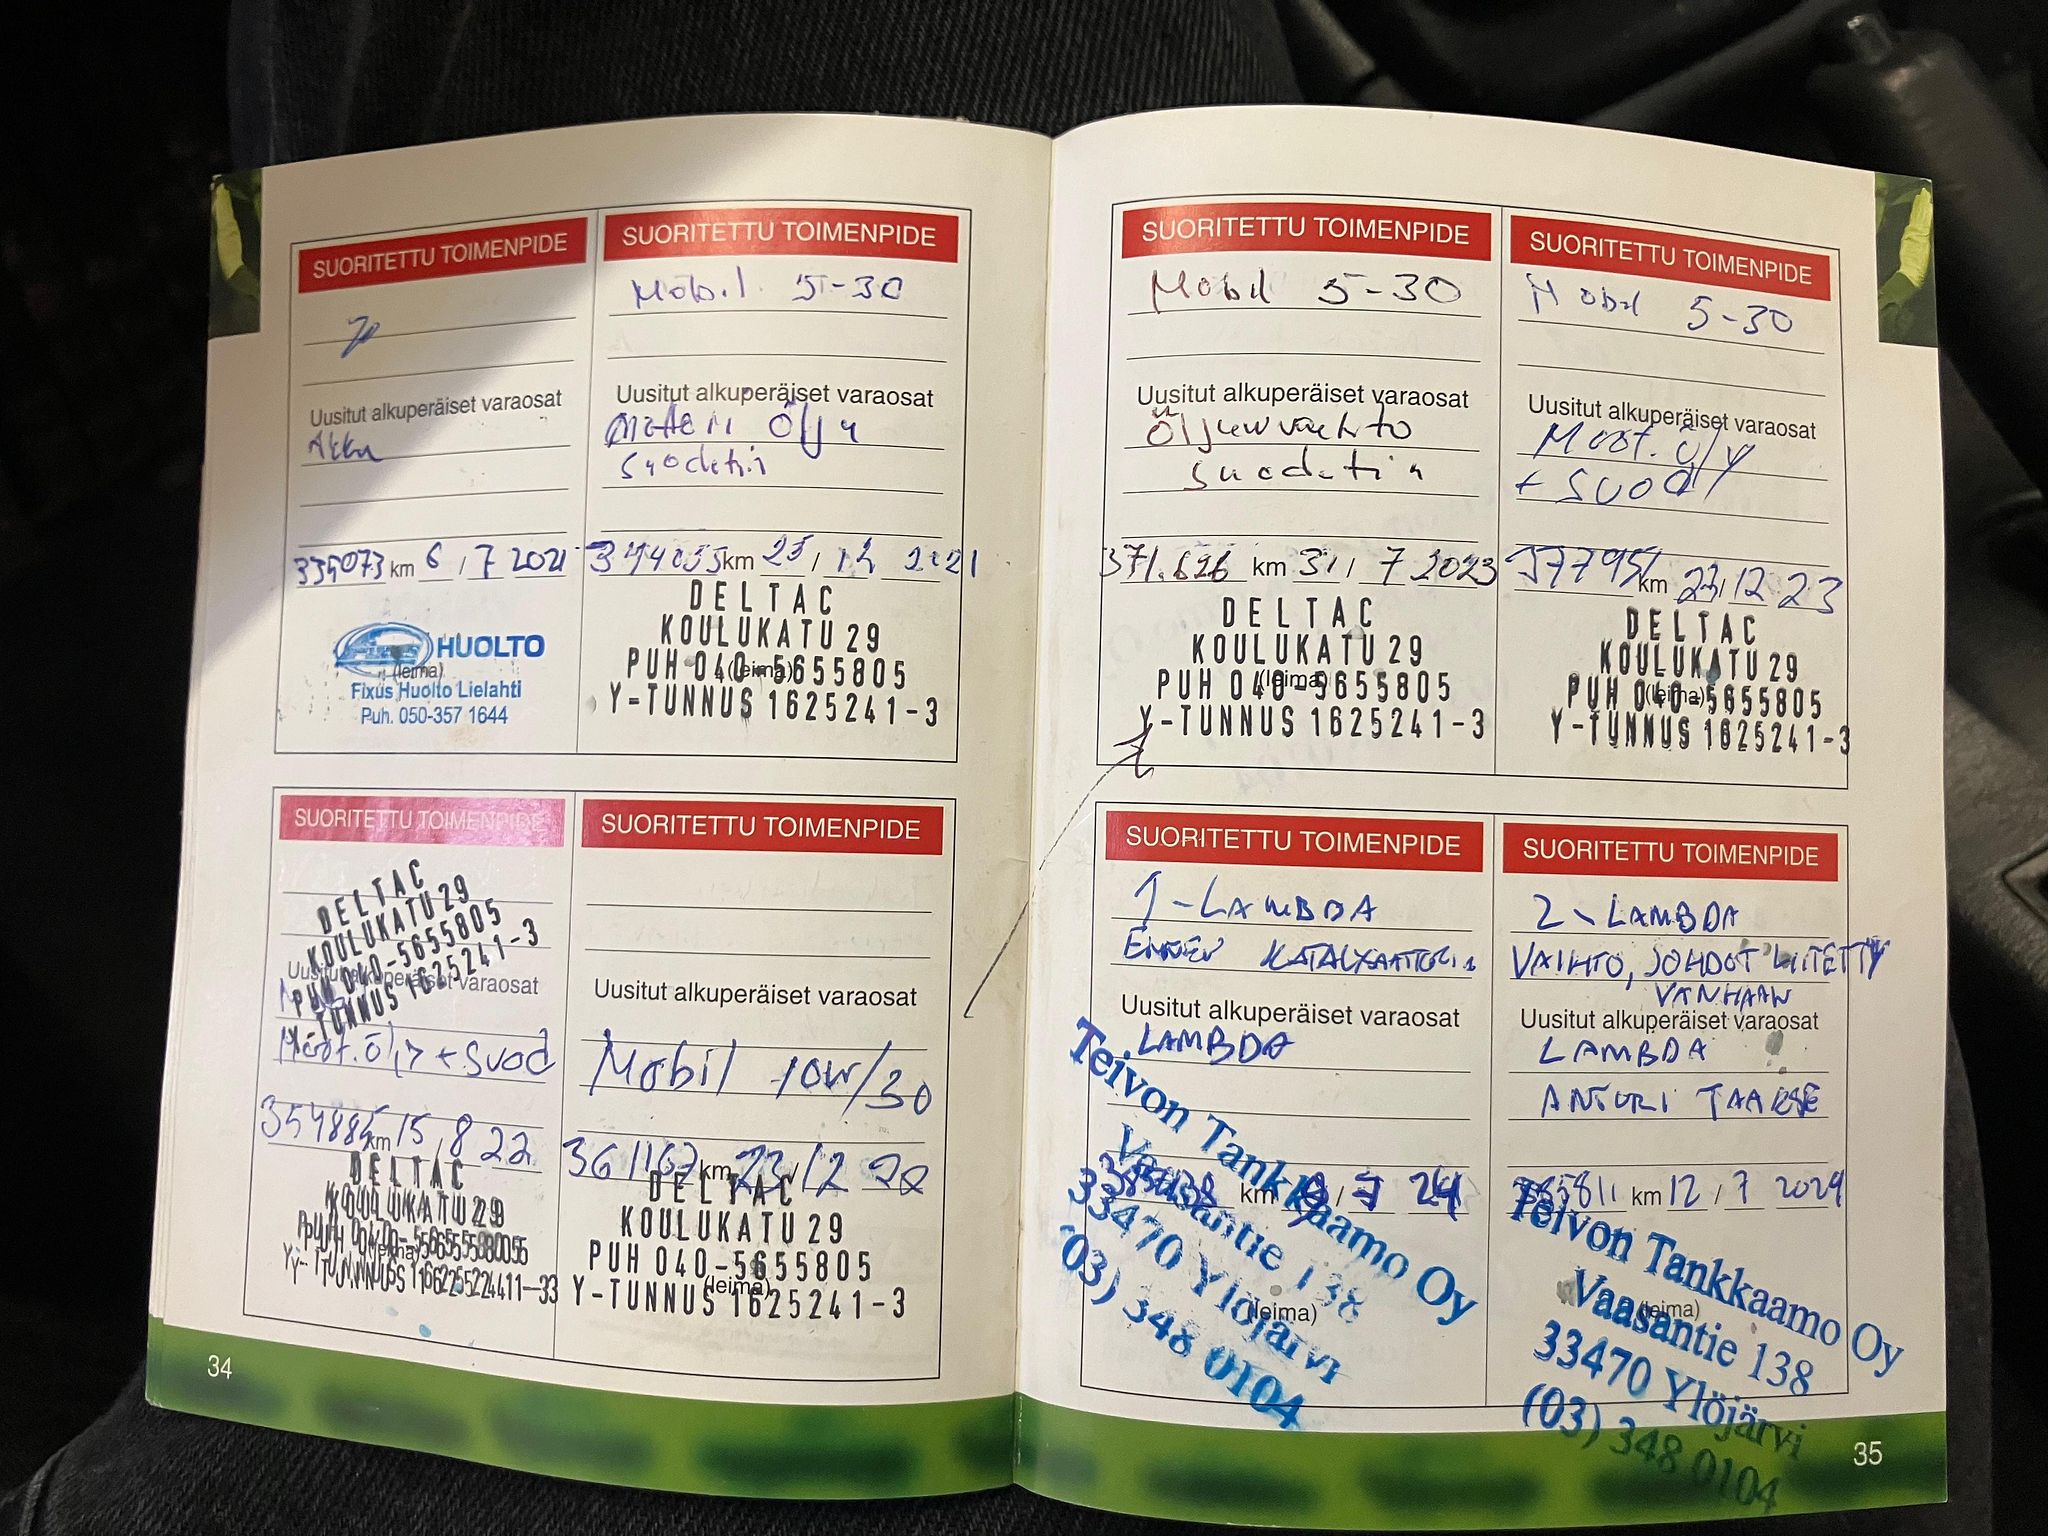 SUORITETTU TOIMENPIDE
Uusitut alkuperäiset varaosat
Akku
335073 km 6 / 7 2021
HUOLTO
(leima)
Fixus Huolto Lielahti
Puh. 050-357 1644
SUORITETTU TOIMENPIDE
Mobil 5-30
Uusitut alkuperäiset varaosat
moottori ölju
suodatin
km 23 / 12 2021
DELTAC
KOULUKATU 29
PUH 040-5655805
(leima)
Y-TUNNUS 1625241-3
SUORITETTU TOIMENPIDE
DELTAC
KOULUKATU 29
PUH 040-5655805
Y-TUNNUS 1625241-3
Uusitut alkuperäiset varaosat
Moot. öljy + suod
354885 km 15 / 8 22
DELTAC
KOULUKATU 29
(leima)
SUORITETTU TOIMENPIDE
Uusitut alkuperäiset varaosat
Mobil 10w/30
361167 km 23 / 12 22
DELTAC
KOULUKATU 29
PUH 040-5655805
(leima)
Y-TUNNUS 1625241-3
34
SUORITETTU TOIMENPIDE
Mobil 5-30
Uusitut alkuperäiset varaosat
Öljynvaihto
suodatin
371.626 km 31 / 7 2023
DELTAC
KOULUKATU 29
PUH 040-5655805
(leima)
Y-TUNNUS 1625241-3
SUORITETTU TOIMENPIDE
Mobil 5-30
Uusitut alkuperäiset varaosat
Moot. öljy
+ suod
377951 km 23 / 12 23
DELTAC
KOULUKATU 29
PUH 040-5655805
(leima)
Y-TUNNUS 1625241-3
SUORITETTU TOIMENPIDE
1-LAMBDA
ENNEN KATALYSAATTORIA
Uusitut alkuperäiset varaosat
LAMBDA
km 7 24
Teivon Tankkaamo Oy
Vaasantie 138
33470 Ylöjärvi
(leima)
(03) 348 0104
SUORITETTU TOIMENPIDE
2-LAMBDA
VAIHTO, JOHDOT LIITETTY
VANHAAN
Uusitut alkuperäiset varaosat
LAMBDA
ANTURI TAAKSE
385811 km 12 / 7 2024
Teivon Tankkaamo Oy
Vaasantie 138
(leima)
33470 Ylöjärvi
(03) 348 0104
35